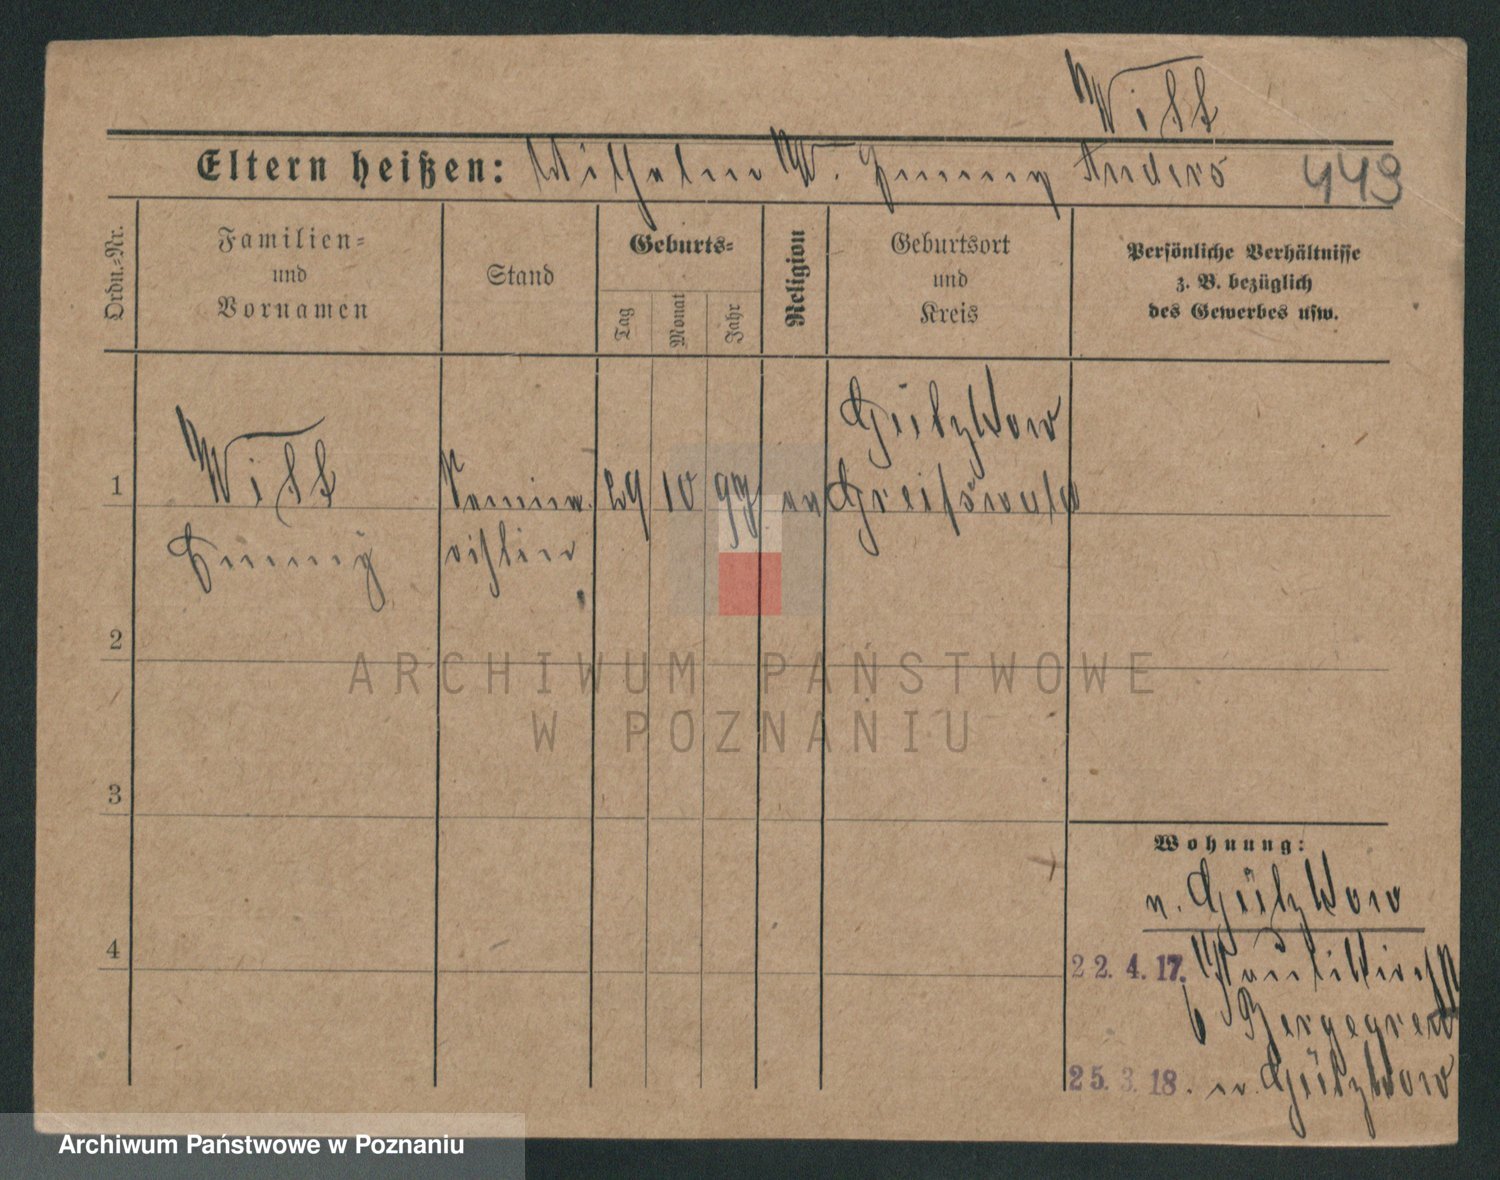 Witt
Eltern heißen: Wilhelm W. Emmy Anders 449
Ordn.-Nr.
Familien-
und
Vornamen
Stand
Geburts-
Tag
Monat
Jahr
Religion
Geburtsort
und
Kreis
Persönliche Verhältnisse
z. B. bezüglich
des Gewerbes usw.
Gützkow
1 Witt 29 10 97 ev Greifswald
Emmy
2
3
4
Wohnung:
n. Gützkow
22. 4. 17. Paulikirchst
25. 3. 18. n. Gützkow
ARCHIWUM PAŃSTWOWE
W POZNANIU
Archiwum Państwowe w Poznaniu